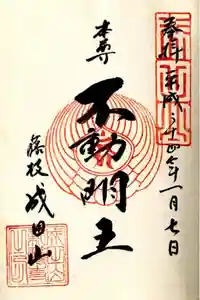 奉拝 平成二十四年一月七日
本尊
不動明王
藤枝 成田山